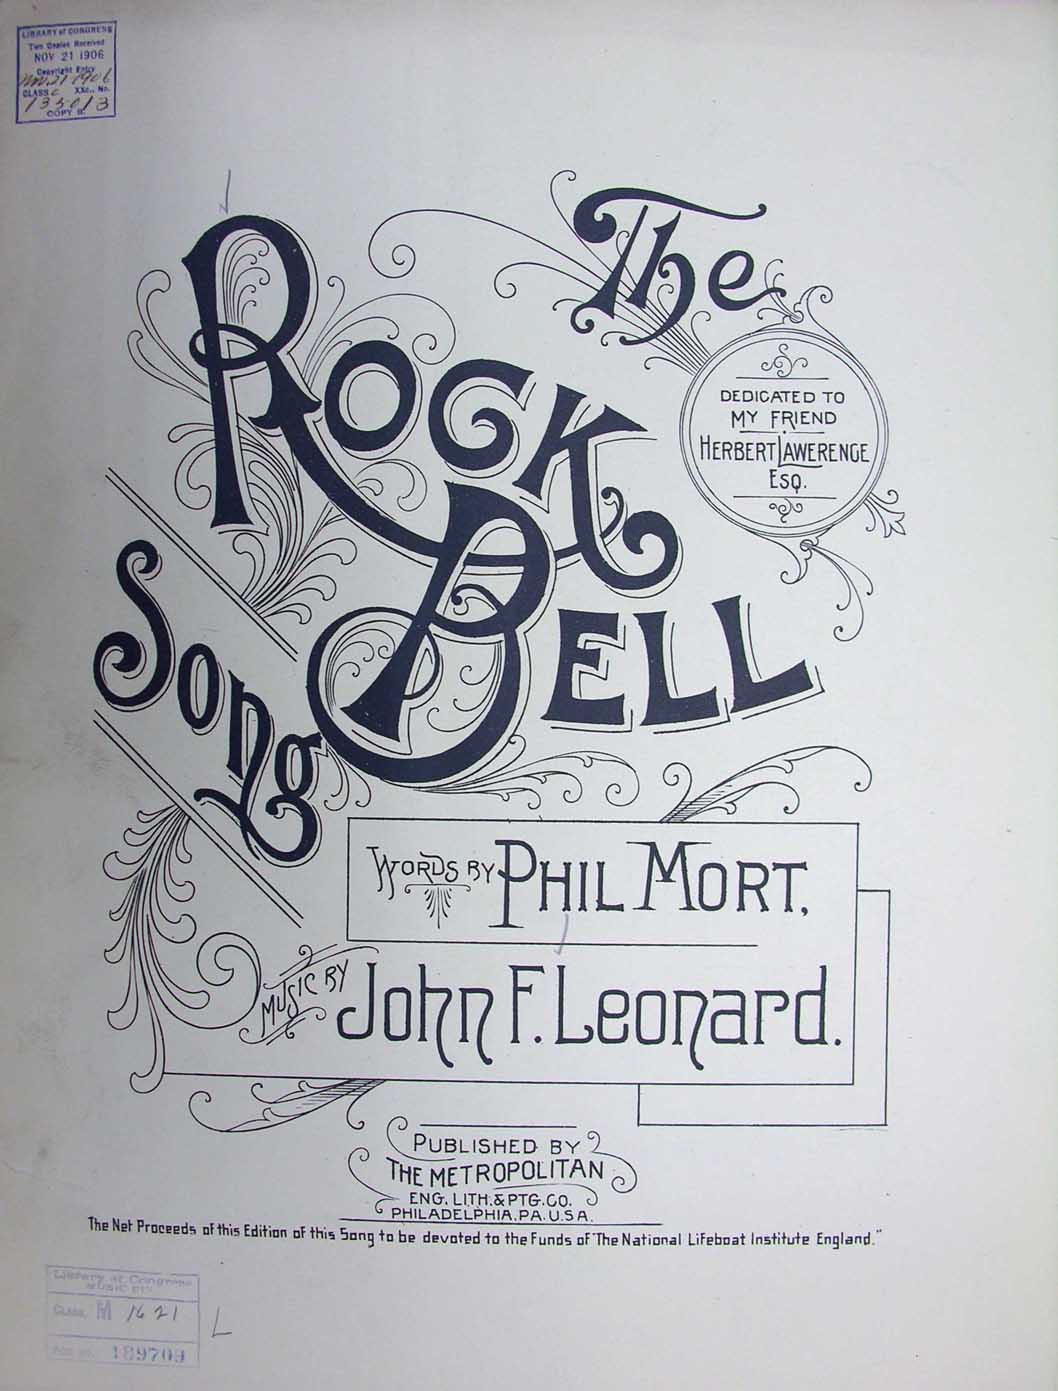 LIBRARY of CONGRESS
Two Copies Received
NOV 21 1906
Copyright Entry
Nov. 21 1906
CLASS C XXc., No.
135013
COPY B.
The
ROCK
BELL
Song
DEDICATED TO
MY FRIEND
HERBERT LAWERENCE
ESQ.
WORDS BY PHIL MORT,
MUSIC BY John F. Leonard.
PUBLISHED BY
THE METROPOLITAN
ENG. LITH. & PTG. CO.
PHILADELPHIA, PA. U.S.A.
The Net Proceeds of this Edition of this Song to be devoted to the Funds of "The National Lifeboat Institute England."
Library of Congress
MUSIC DIV.
CLASS. M 1621
L
ACC. NO. 189709